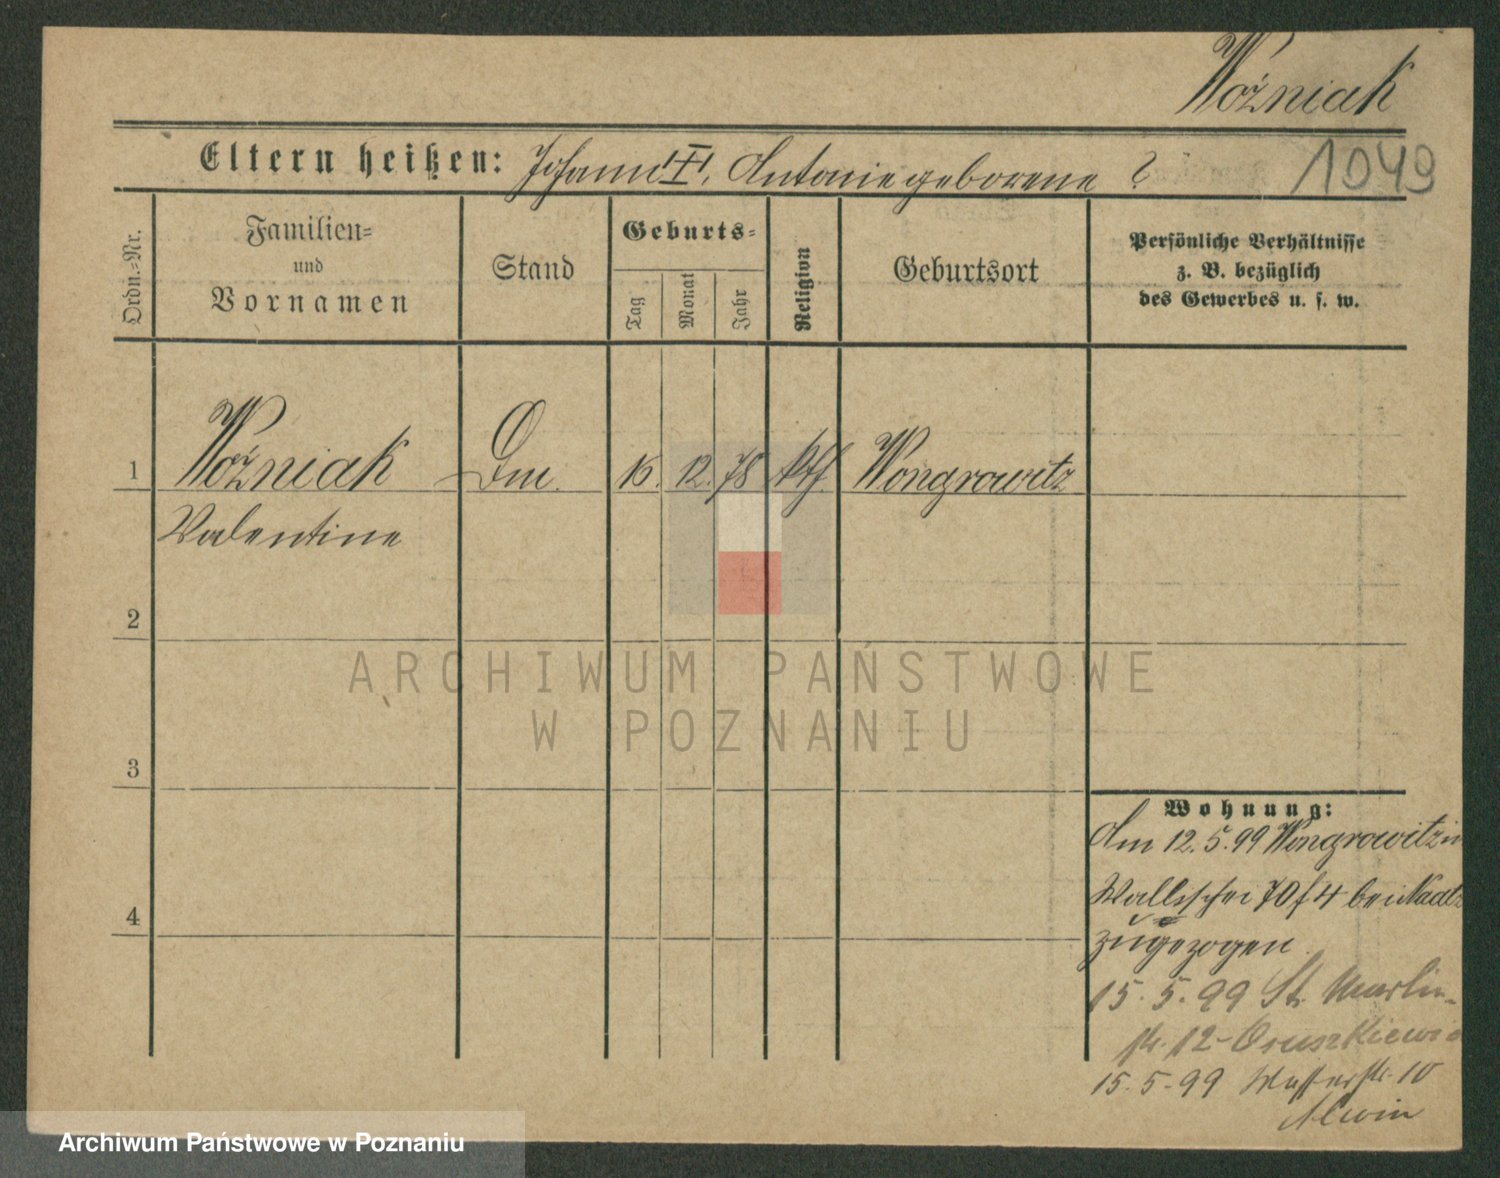 Woźniak
Eltern heißen: Johann I, Antonie geborene ?
1049
Ordn.=Nr.
Familien=
und
Vornamen
Stand
Geburts=
Tag
Monat
Jahr
Religion
Geburtsort
Persönliche Verhältnisse
z. B. bezüglich
des Gewerbes u. s. w.
1
Woźniak
Dm.
16. 12. 78
Kth.
Wongrowitz
Valentine
2
ARCHIWUM PAŃSTWOWE
W POZNANIU
3
Wohnung:
Am 12. 5. 99 Wongrowitz in
Wallischei 70 f 4 bei
4
zugezogen
15. 5. 99 St. Martin-
str. 12
15. 5. 99 Wasserstr. 10
Alwin
Archiwum Państwowe w Poznaniu